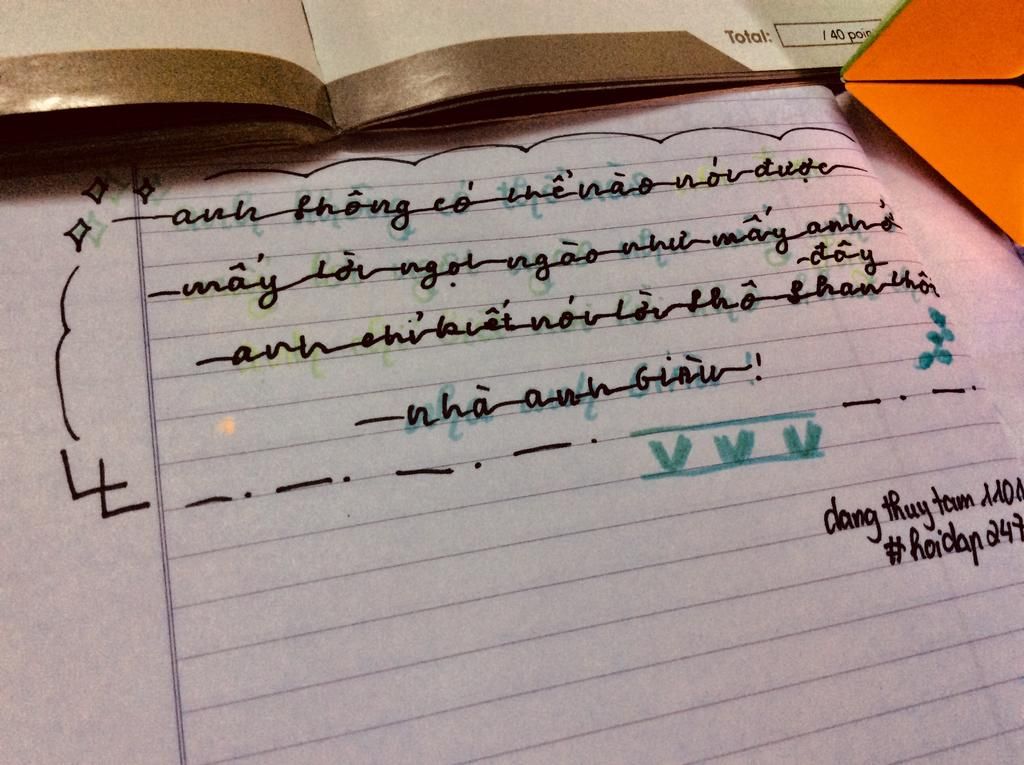 Total: / 40 poin
anh không có thể nào nói được
mấy lời ngọt ngào như mấy anh ở
đây
anh chỉ biết nói lời khô khan thôi
nhà anh Giàu!
dang thuy tam 1101
#hoidap247